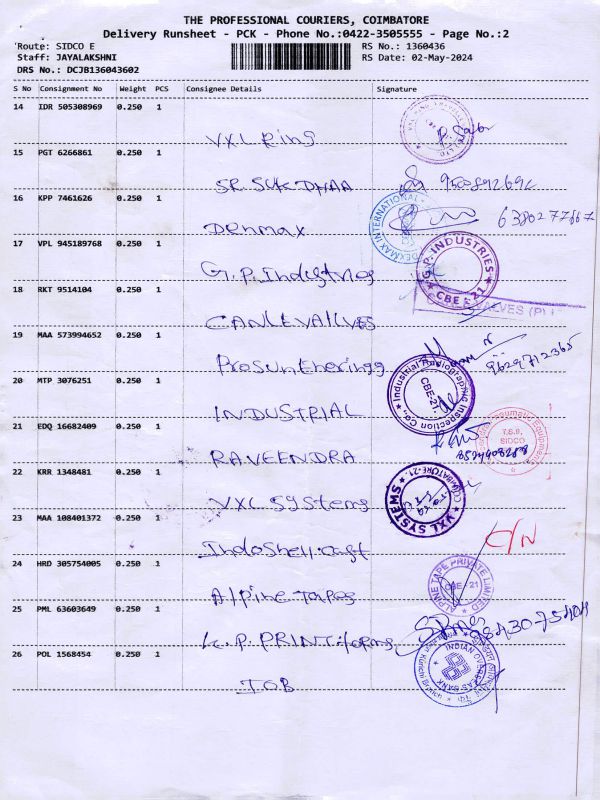 THE PROFESSIONAL COURIERS, COIMBATORE
Delivery Runsheet - PCK - Phone No.:0422-3505555 - Page No.:2
Route: SIDCO E
RS No.: 1360436
Staff: JAYALAKSHNI
RS Date: 02-May-2024
DRS No.: DCJB136043602
S No Consignment No Weight PCS Consignee Details Signature
14 IDR 505308969 0.250 1
VXL Ring
15 PGT 6266861 0.250 1
SR. SUKDHAA
16 KPP 7461626 0.250 1
DEXMAX INTERNATIONAL
6380277667
Denmax
17 VPL 945189768 0.250 1
G.P. INDUSTRIES
CBE-21
G.P. Industries
18 RKT 9514104 0.250 1
ALVES (P)
CANLEVALLVES
19 MAA 573994652 0.250 1
9629712365
ProSun Eneringg
20 MTP 3076251 0.250 1
Industrial Radiographing Inspection Co.,
CBE-21.
INDUSTRIAL
21 EDQ 16682409 0.250 1
Pneumatic Equipments
T.S.8,
SIDCO
RAVEENDRA
22 KRR 1348481 0.250 1
VXL SYSTEMS
COIMBATORE-21.
VXL Systems
23 MAA 108401372 0.250 1
C/N
IndoShell cast
24 HRD 305754005 0.250 1
ALPINE TAPE PRIVATE LIMITED
CBE 21
Alpine Tapes
25 PML 63603649 0.250 1
K.P. PRINT forms
26 POL 1568454 0.250 1
INDIAN OVERSEAS BANK
IOB